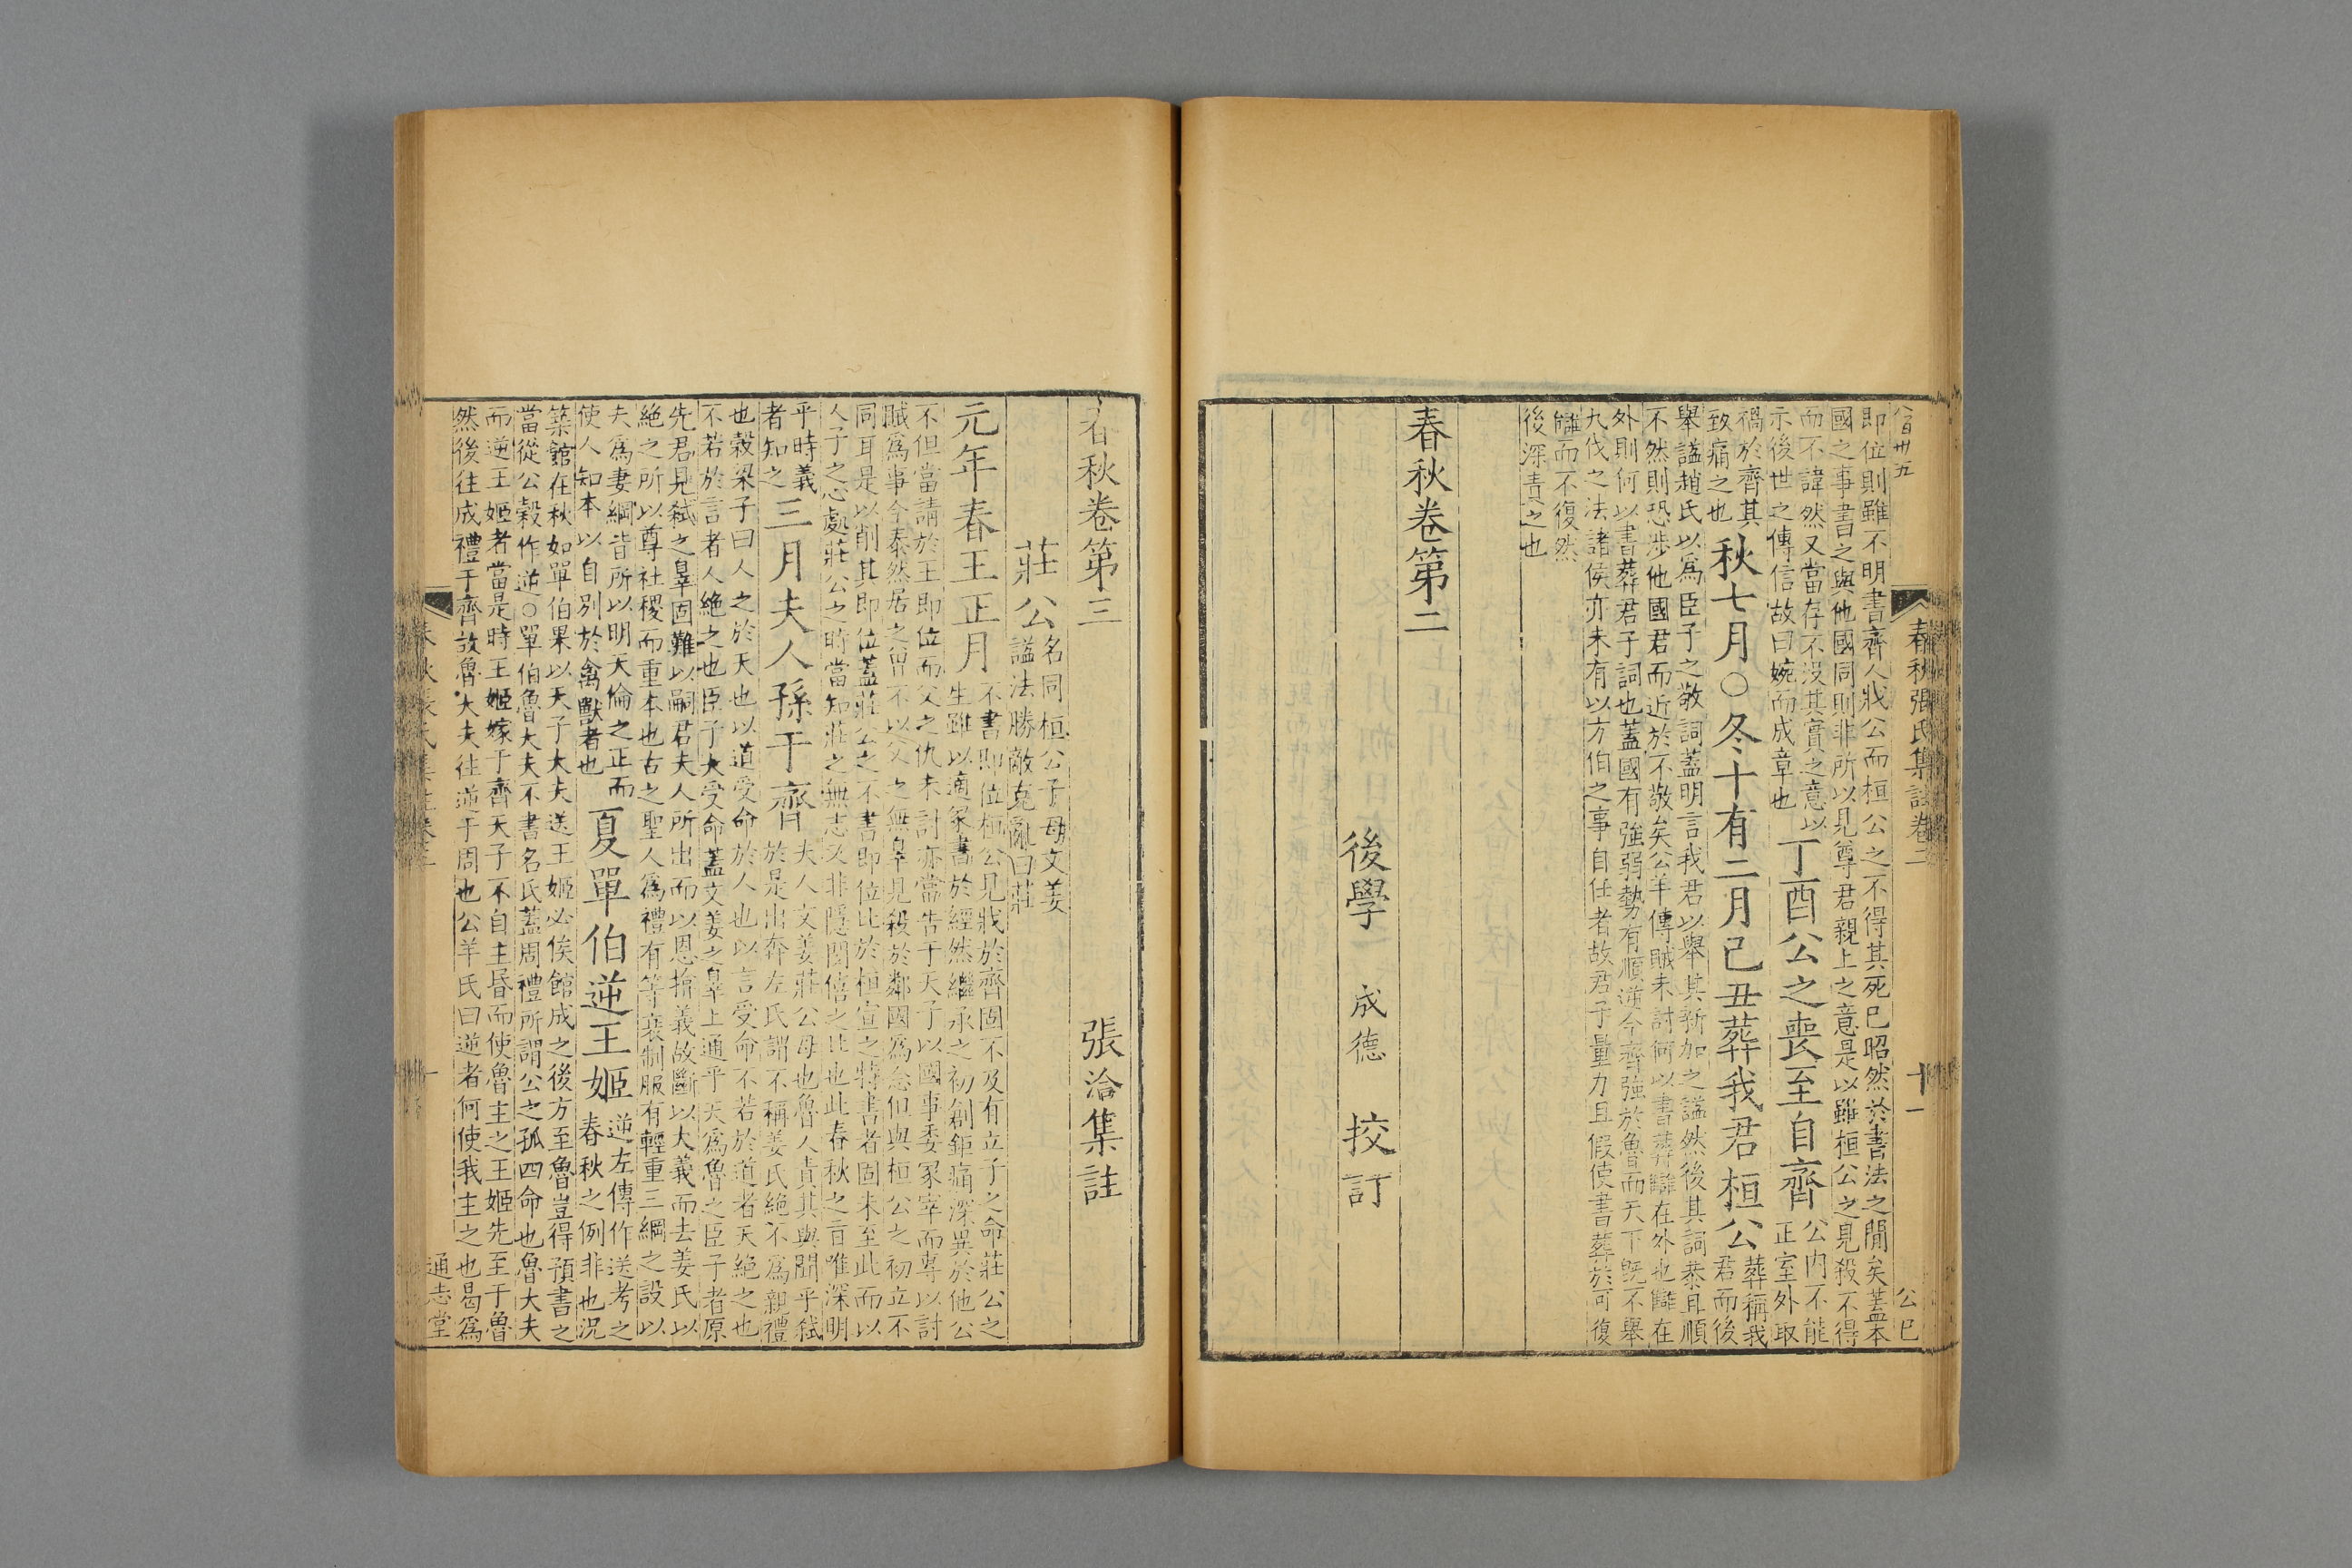 春秋張氏集註卷二
十一
公巳
即位則雖不明書齊人戕公而桓公之不得其死已昭然於書法之閒矣蓋本
國之事書之與他國同則非所以見尊君親上之意是以雖桓公之見殺不得
而不諱然又當存不没其實之意以
示後世之傳信故曰婉而成章也
丁酉公之喪至自齊
公内不能
正室外取
禍於齊其
致痛之也
秋七月○冬十有二月己丑葬我君桓公
葬稱我
君而後
舉諡趙氏以爲臣子之敬詞蓋明言我君以舉其新加之諡然後其詞恭且順
不然則恐涉他國君而近於不敬矣公羊傳賊未討何以書葬讎在外也讎在
外則何以書葬君子詞也蓋國有強弱勢有順逆今齊強於魯而天下旣不舉
九伐之法諸侯亦未有以方伯之事自任者故君子量力且假使書葬於可復
讎而不復然
後深責之也
春秋卷第二
後學 成德 挍訂
春秋卷第三
張洽集註
莊公
名同桓公子母文姜
諡法勝敵克亂曰莊
元年春王正月
不書即位桓公見戕於齊固不及有立子之命莊公之
生雖以適冢書於經然繼承之初創鉅痛深異於他公
不但當請於王即位而父之仇未討亦當告于天子以國事委冢宰而專以討
賊爲事今泰然居之曾不以父之無辠見殺於鄰國爲念但與桓公之初立不
同耳是以削其即位蓋莊公之不書即位比於桓宣之特書者固未至此而以
人子之心處莊公之時當知莊之無志又非隱閔僖之比也此春秋之旨唯深明
乎時義
者知之
三月夫人孫于齊
夫人文姜莊公母也魯人責其與聞乎弒
於是出奔左氏謂不稱姜氏絶不爲親禮
也穀梁子曰人之於天也以道受命於人也以言受命不若於道者天絶之也
不若於言者人絶之也臣子大受命蓋文姜之辠上通乎天爲魯之臣子者原
先君見弒之辠固難以嗣君夫人所出而以恩揜義故斷以大義而去姜氏以
絶之所以尊社稷而重本也古之聖人爲禮有等衰制服有輕重三綱之設以
夫爲妻綱皆所以明天倫之正而
使人知本以自別於禽獸者也
夏單伯逆王姬
逆左傳作送考之
春秋之例非也況
築館在秋如單伯果以天子大夫送王姬必俟館成之後方至魯豈得預書之
當從公穀作逆○單伯魯大夫不書名氏蓋周禮所謂公之孤四命也魯大夫
而逆王姬者當是時王姬嫁于齊天子不自主昏而使魯主之王姬先至于魯
然後往成禮于齊故魯大夫往逆于周也公羊氏曰逆者何使我主之也曷爲
一
通志堂